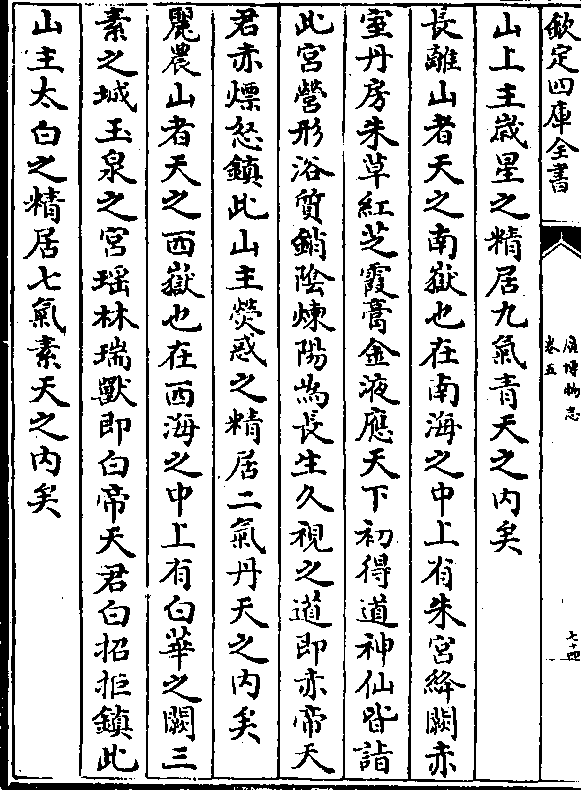 欽定四庫全書
廣博物志
卷五
七十四
山上主歳星之精居九氣青天之内矣
長離山者天之南嶽也在南海之中上有朱宫絳闕赤
室丹房朱草紅芝霞膏金液應天下初得道神仙皆詣
此宫營形浴質銷陰煉陽為長生久視之道即赤帝天
君赤熛怒鎮此山主熒惑之精居二氣丹天之内矣
麗農山者天之西嶽也在西海之中上有白華之闕三
素之城玉泉之宫瑶林瑞獸即白帝天君白招拒鎮此
山主太白之精居七氣素天之内矣